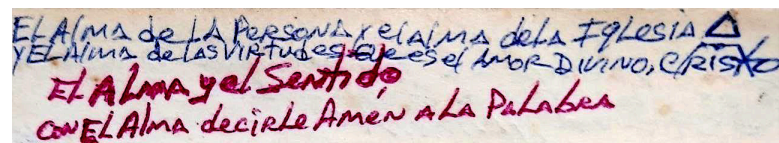 EL Alma de LA Persona y el alma de la Iglesia
y EL Alma de las Virtudes que es el Amor Divino, Cristo
El Alma y el Sentido,
con El Alma decirle Amen a la Palabra